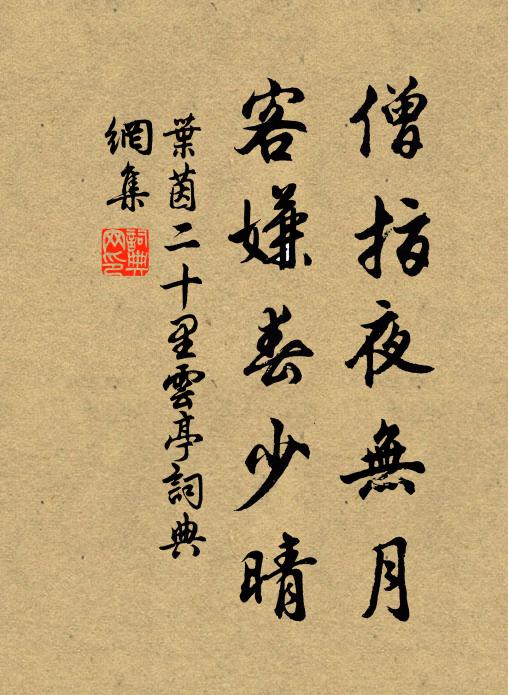 僧指夜無月
客嫌春少晴
葉茵二十里雲亭詞典
網集
詞典網印